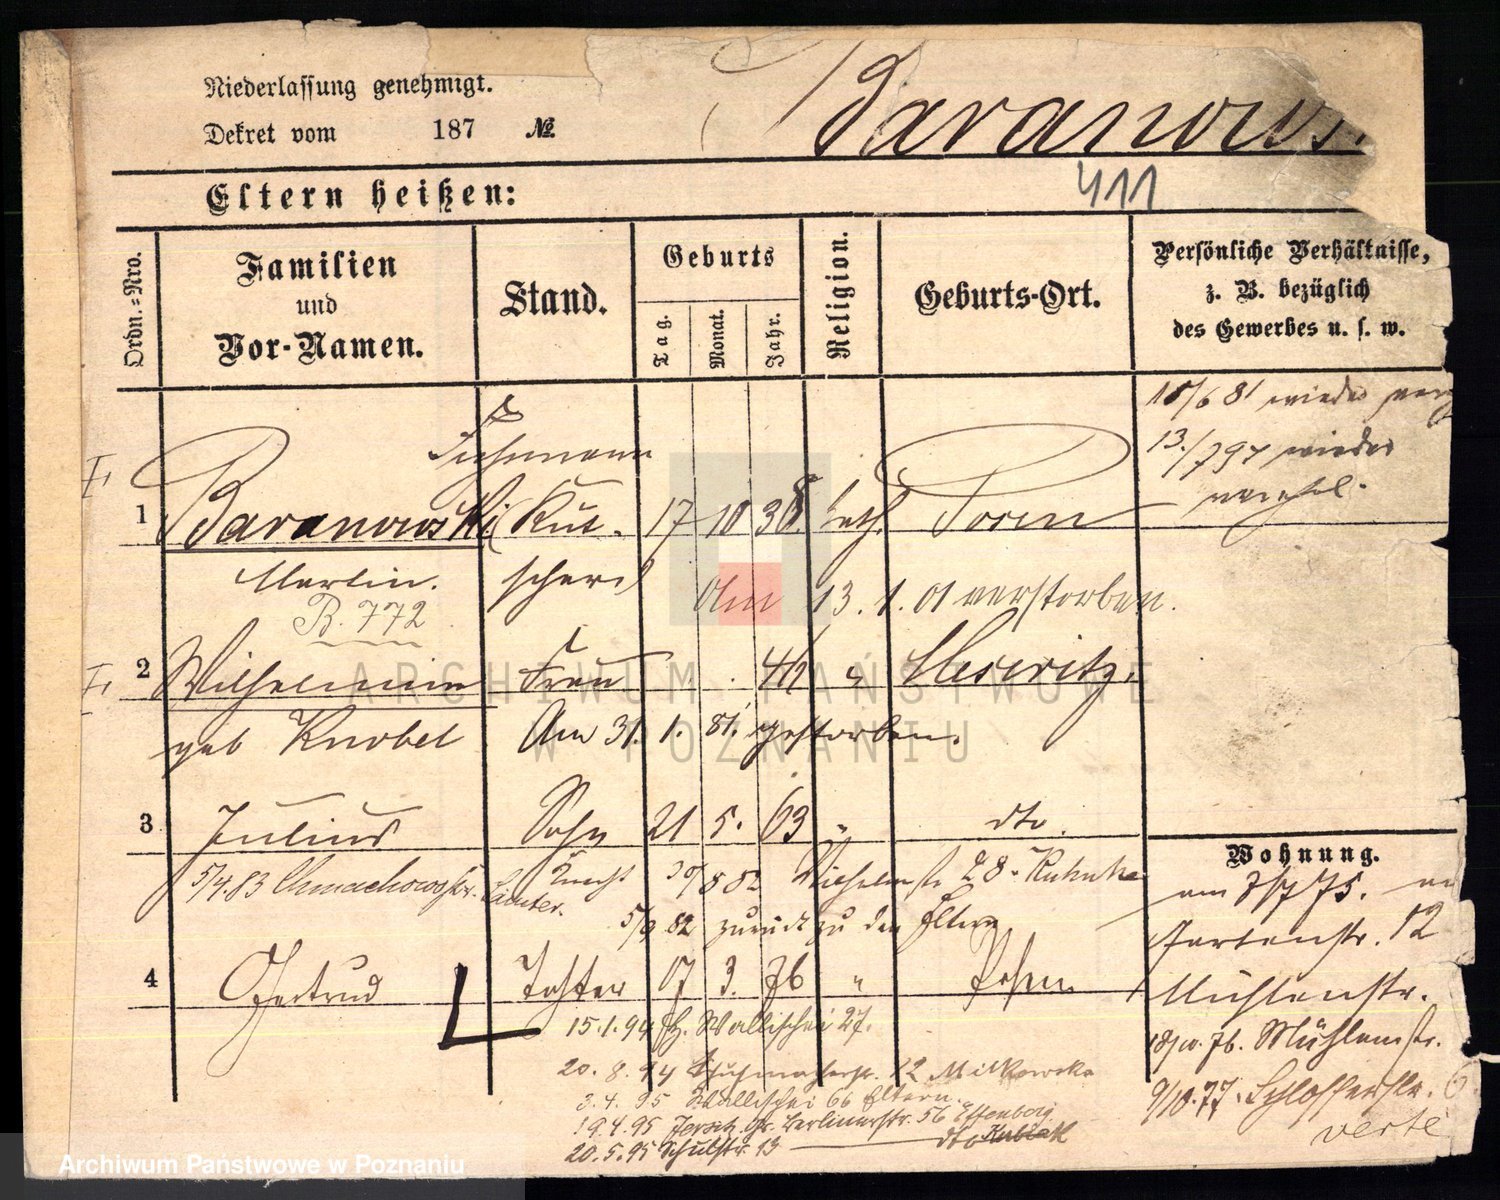 Niederlassung genehmigt.
Dekret vom 187 №.
Baranows
411
Eltern heißen:
Ordn.-Nro.
Familien
und
Vor-Namen.
Stand.
Geburts
Tag.
Monat.
Jahr.
Religion.
Geburts-Ort.
Persönliche Verhältnisse,
z. B. bezüglich
des Gewerbes u. s. w.
10/6 81 wieder
13./7 97 wieder
Fuhrmann
1 Baranowski Kut- 17 10 38 kath. Posen
Martin. scher
B. 772
Am 13. 1. 01 verstorben.
2 Wilhelmine Frau 42 " Meseritz.
geb Knobel Am 31. 1. 81. gestorben.
3 Julius Sohn 21 5. 63 " dto.
Wohnung.
5/4.83 Knecht 82 Wilhelmstr 28.
5/9 82 zurück zu den Eltern
am 7/7 75.
Gartenstr. 12
4 Gertrud Tochter 17 3. 76 " Posen
Mühlenstr.
15.1.94 Wallischei 27.
76. Mühlenstr.
20. 8. 94 12 Milkowska
3. 4. 95 Wallischei 66 Eltern.
9/10.77. Schlosserstr. 6
19.4.95 Jersitz, Gr. Berlinerstr. 56 Effenberg
20.5.95 Schulstr. 13 dto Kubiak
verte
ARCHIWUM PAŃSTWOWE
W POZNANIU
Archiwum Państwowe w Poznaniu